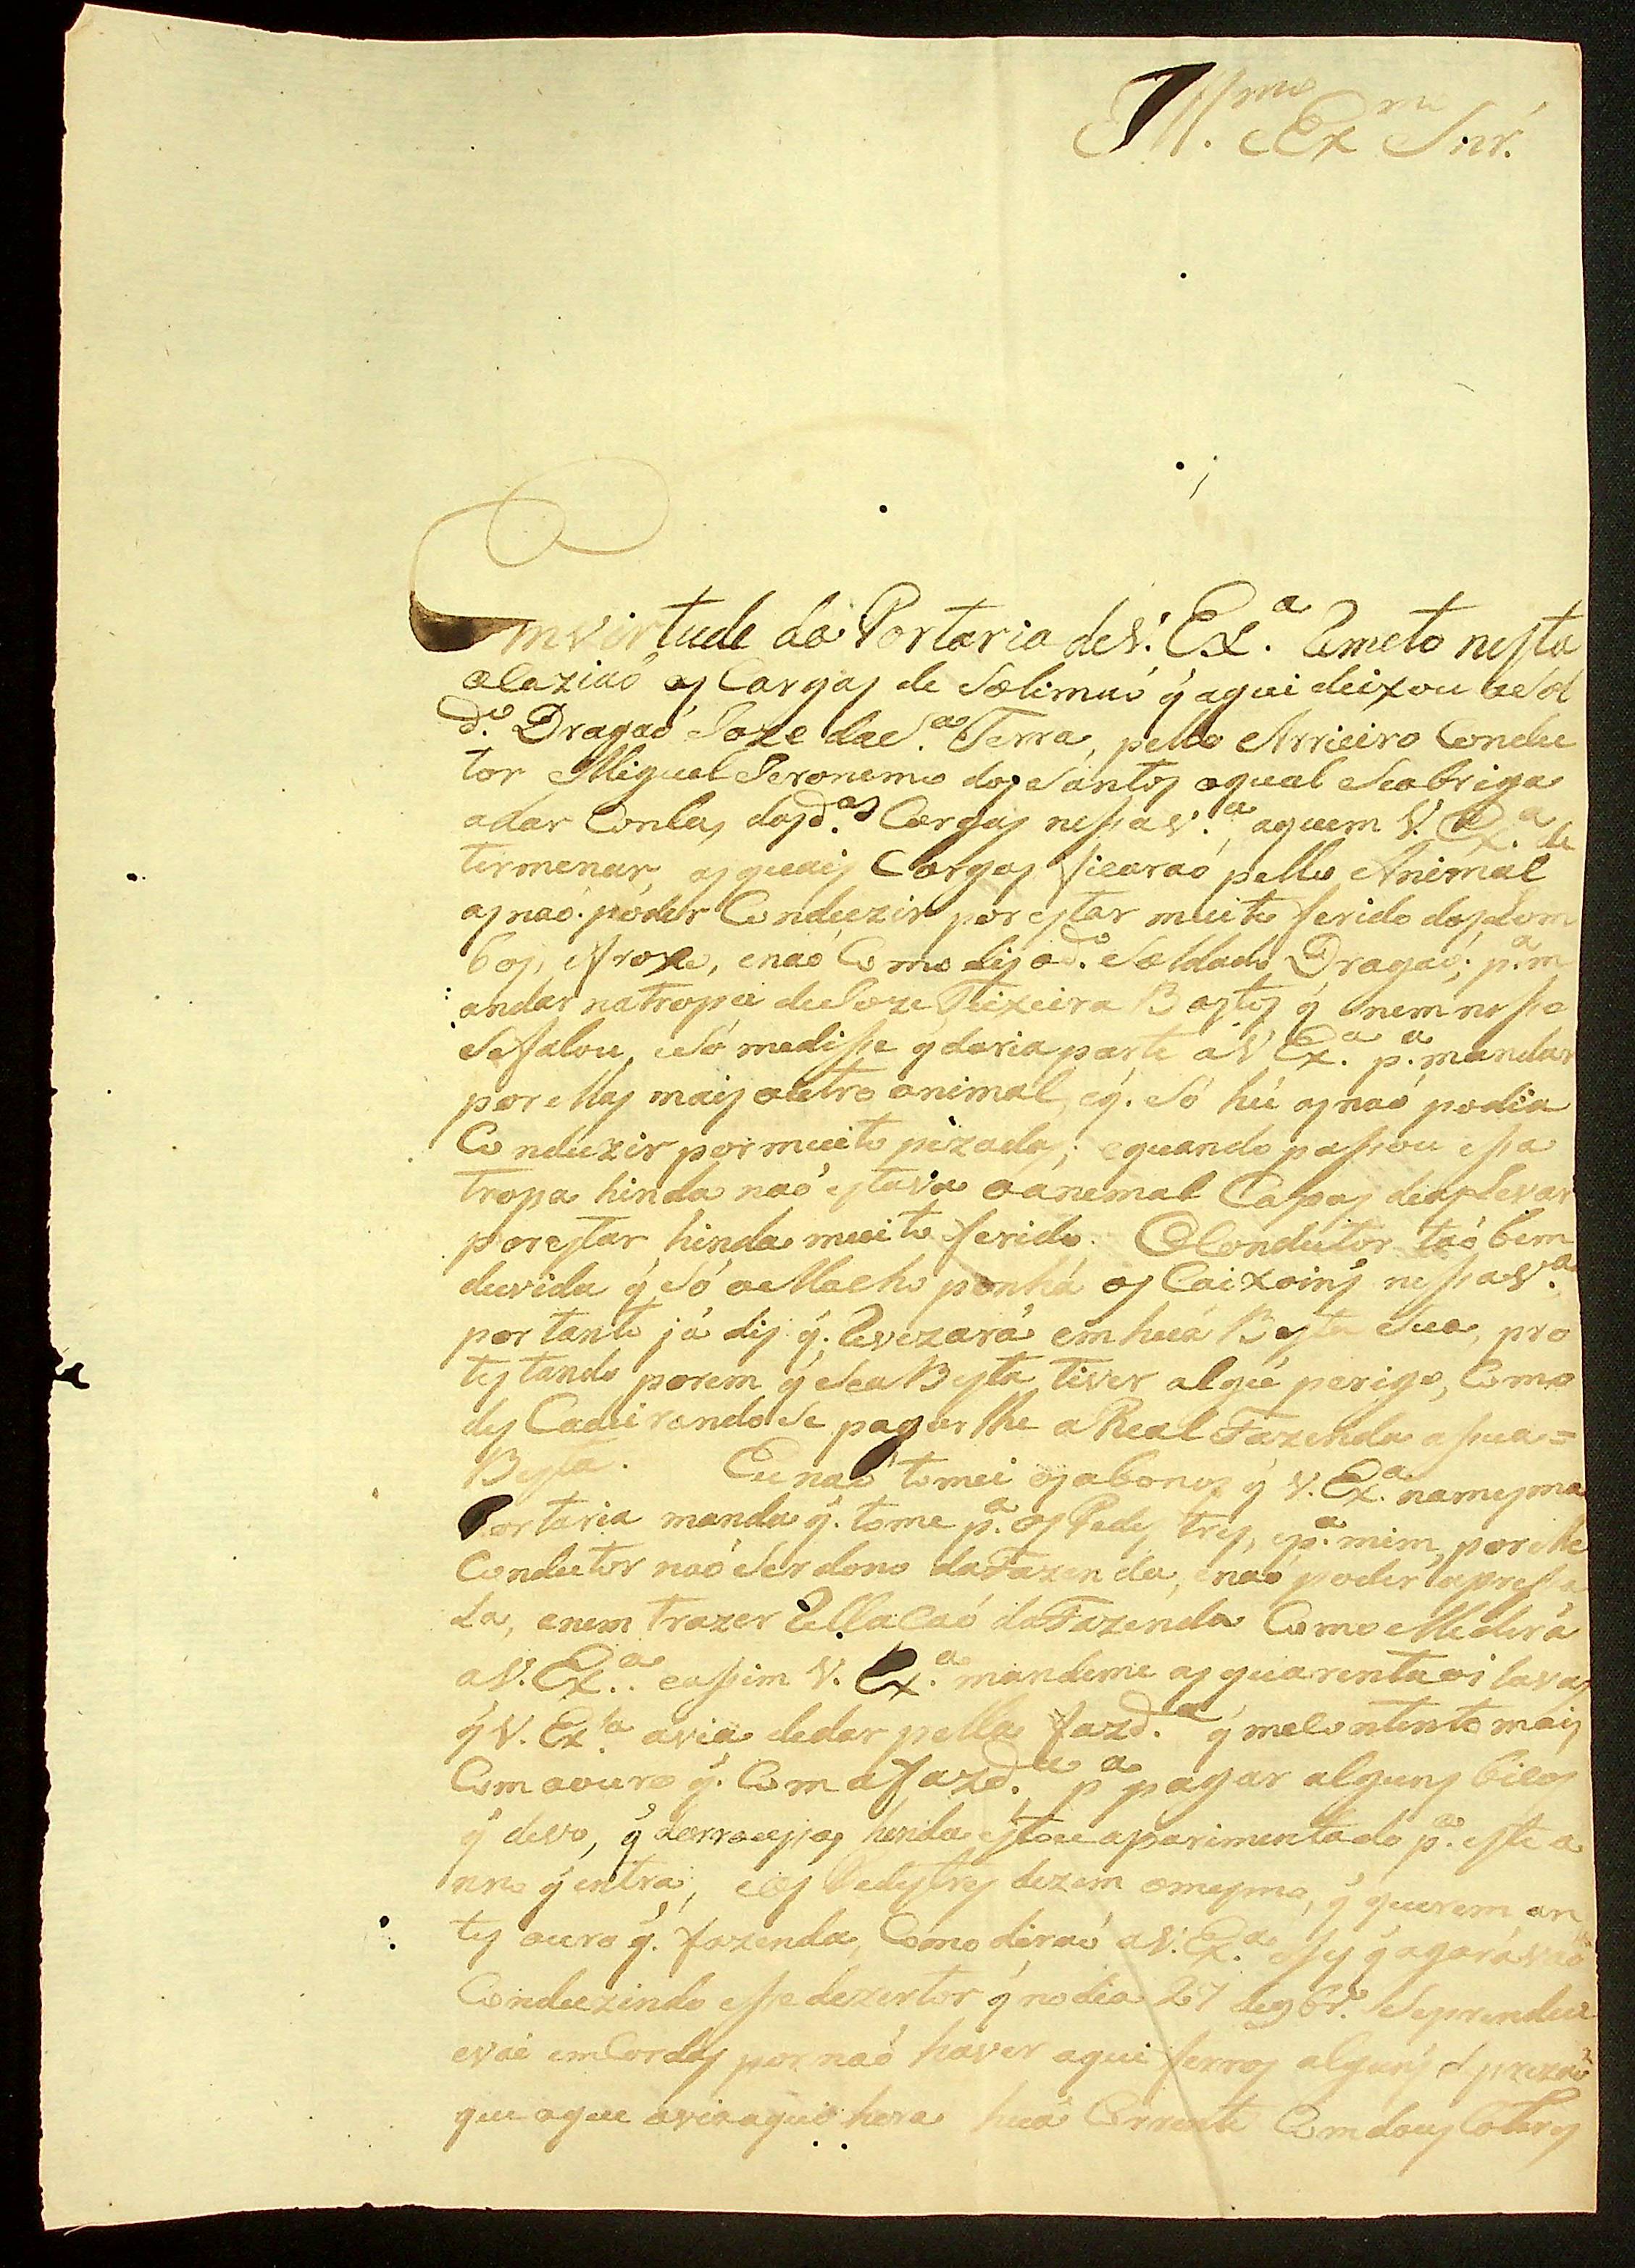 Ill.mo Ex.mo Snr.
Emvirtude da Portaria de V. Ex.a Remeto nesta
ocaziaõ as Cargas de Solimaõ q̃ aqui deixou o Sol
d.o Dragaõ Joze da S.a Terra, pello Arrieiro Condu
tor Miguel Jeronemo dos Santos oqual seobriga
adar Contas dasd.as Cargas nessa V.a aquem V. Ex.a de
termenar, asquais Cargas ficaraõ pello Animal
asnaõ poder Conduzir por estar muito ferido dos Lom
bos, efroxo, enaõ Como dis od.o Soldado Dragaõ, p.a m
andar natropa de Joze Teixeira Bastos q̃ nem nisso
sefalou, eSó medisse q̃ daria parte a V. Ex.a p.a mandar
por ellas mais outro animal, eq̃. só hú asnaõ podia
Conduzir por muito pezadas; equando passou essa
tropa hinda naõ estava oanemal Capas deas Levar
porestar hinda muito ferido. OCondutor taõ bem
duvida q̃ só oMacho ponhá os Caixoins nessa V.a
por tanto já dis q̃. Revezará em huá Besta Sua, pro
testando porem q̃ sea Besta tiver algú perigo, Como
des Cadeirandose pagarlhe a Real Fazenda asua=
Besta. Eu naõ tomei osabonos q̃ V. Ex.a namesma
Portaria manda q̃. tome p.a os Pedestres, ep.a mim, por elle
Condutor naõ Ser dono dafazenda, enaõ poder apressa
La, enem trazer Rellacaõ dafazenda Como elle dirá
a V. Ex.a. eassim V. Ex.a mandeme as quarenta oitavas
q̃ V. Ex.a avia dedar pella fazd.a q̃ mecontento mais
Com oouro q̃. Com afazd.a p.a pagar alguns
q̃ devo, q̃ hinda estou p.a este a
nno q̃ entra, eos Pedestres dezem omesmo, q̃ querem an
tes ouro q̃. fazenda, Como diraõ a V. Ex.a esses q̃ agora vaõ
Conduzindo esse dezertor q̃ nodia 27 de 9br.o Seprendeu
evai emCordas por naõ haver aqui ferros alguns
que oque avia aqui hera huá Corrente Comdous Colares